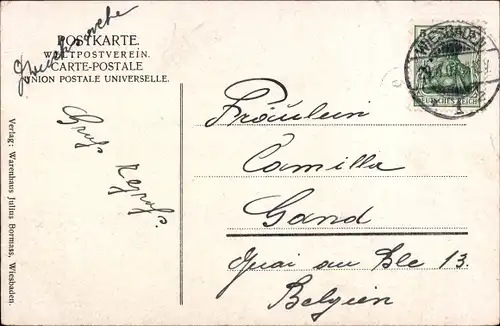 Drucksache
POSTKARTE.
WELTPOSTVEREIN.
CARTE-POSTALE
UNION POSTALE UNIVERSELLE.
WIESBADEN
5
DEUTSCHES REICH
Gruß
Fräulein
Camilla
Gand
Quai au Ble 13
Belgien
Verlag: Warenhaus Julius Bormass, Wiesbaden.